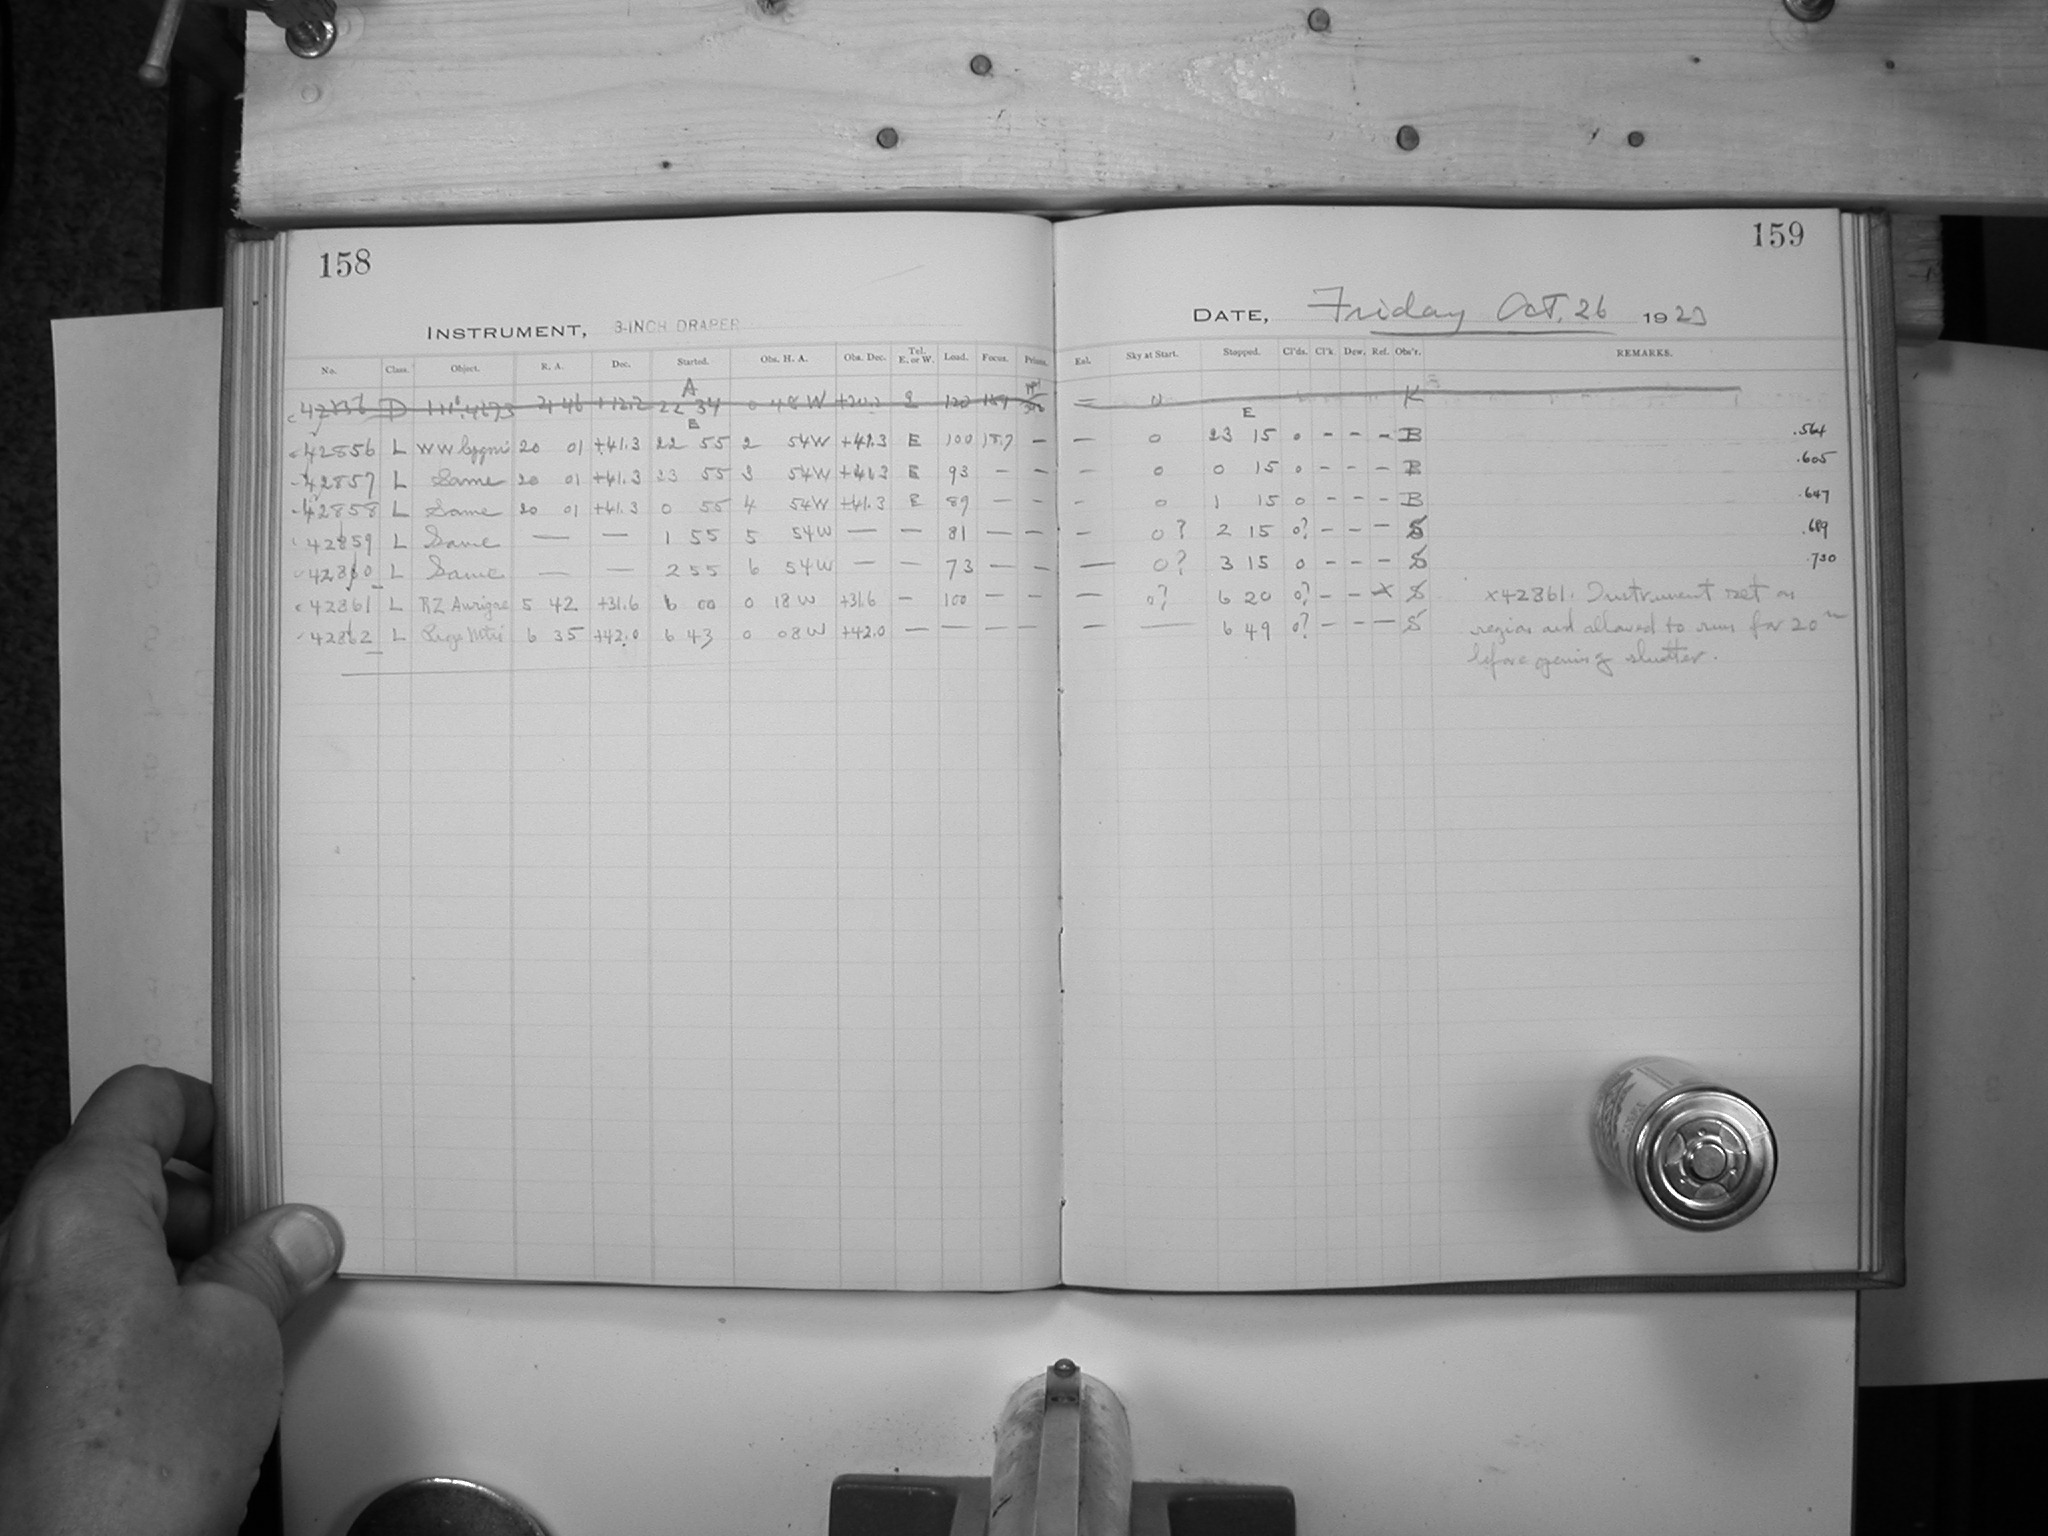 158
159
INSTRUMENT, 8-INCH DRAPER
DATE, Friday Oct. 26 1923
No. Class. Object. R. A. Dec. Started. Obs. H. A. Obs. Dec. Tel. E. or W. Load. Focus. Prisms. Eal. Sky at Start. Stopped. Cl'ds. Cl'k. Dew. Ref. Obs'r. REMARKS.
A
D 22 34 0 48 W 120 = 0 K
E E
42856 L WW Cygni 20 01 +41.3 22 55 2 54W +41.3 E 100 18.7 — — 0 23 15 0 - - - B .564
42857 L Same 20 01 +41.3 23 55 3 54W +41.3 E 93 — — — 0 0 15 0 - - - B .605
42858 L Same 20 01 +41.3 0 55 4 54W +41.3 E 89 — — - 0 1 15 0 - - - B .647
42859 L Same — — 1 55 5 54W — — 81 — — — 0? 2 15 0? - - - S .689
42860 L Same — — 2 55 6 54W — — 73 — — — 0? 3 15 0 - - - S .730
42861 L RZ Aurigae 5 42 +31.6 6 00 0 18 W +31.6 — 100 — — — 0? 6 20 0? - - x S x42861. Instrument set on
42862 L 6 35 +42.0 6 43 0 08W +42.0 — — — — — — 6 49 0? - - - S region and allowed to run for 20m
before opening shutter.